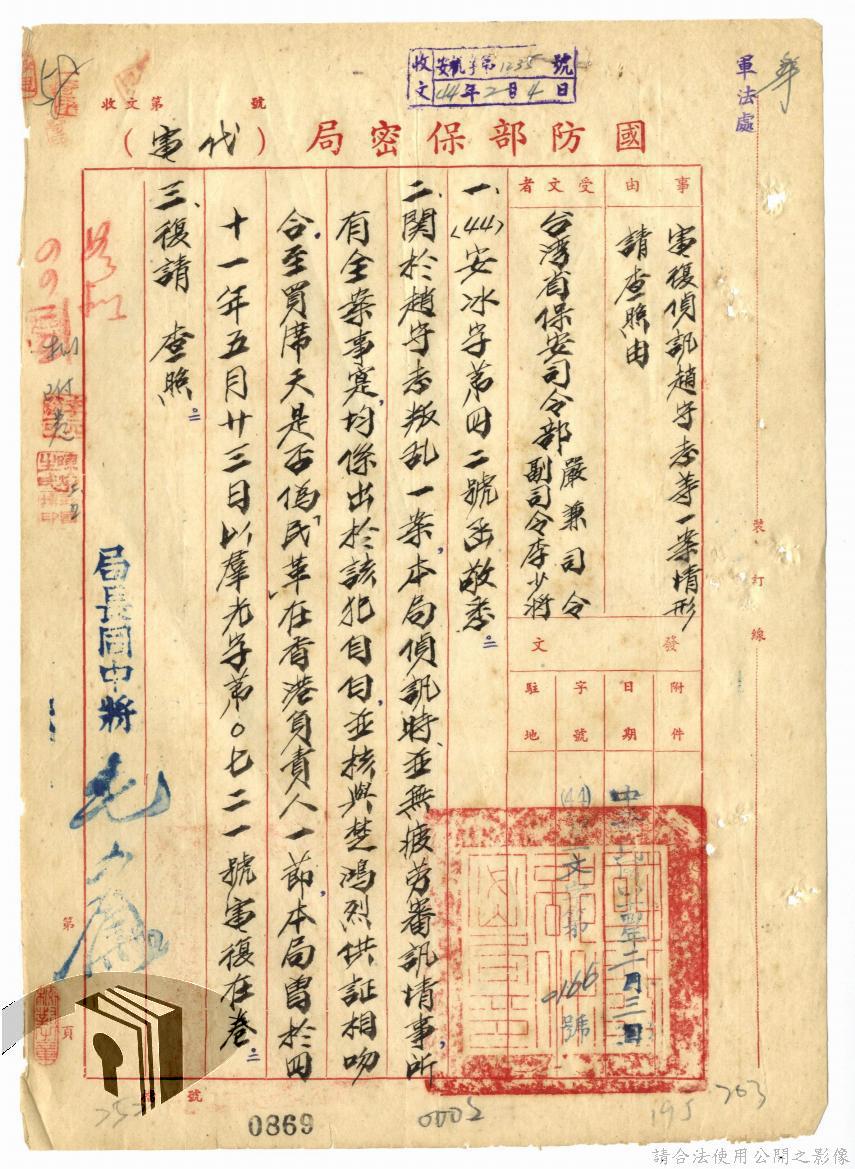 軍法處
收文 安 字第1235號
44年2月4日
收文第 號
國防部保密局（代電）
事由
電復偵訊趙守志等一案情形
請查照由
受文者
台灣省保安司令部嚴兼司令
副司令李少將
發文
附件
日期
中華民國四十四年二月三日
字號
(44) 文字第0166號
駐地
一、(44)安冰字第四二號函敬悉。
二、關於趙守志叛乱一案，本局偵訊時，並無疲勞審訊情事，所
有全案事寔，均係出於該犯自白，並核與楚鴻烈供証相吻
合，至買席天是否偽「民革」在香港負責人一節，本局曾於四
十一年五月廿三日以羣光字第〇七二一號電復在卷。
三、復請 查照。
局長 中將 毛人鳳
擬附卷
裝訂線
第 頁
號
252
0869
0005
195
203
請合法使用公開之影像